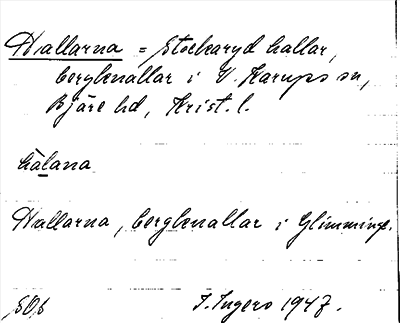 Hallarna = Stockaryd hallar,
bergknallar i V. Karups sn,
Bjäre hd, Krist. l.
hàlana
Hallarna, bergknallar i Glimminge.
I. Ingers 1947.